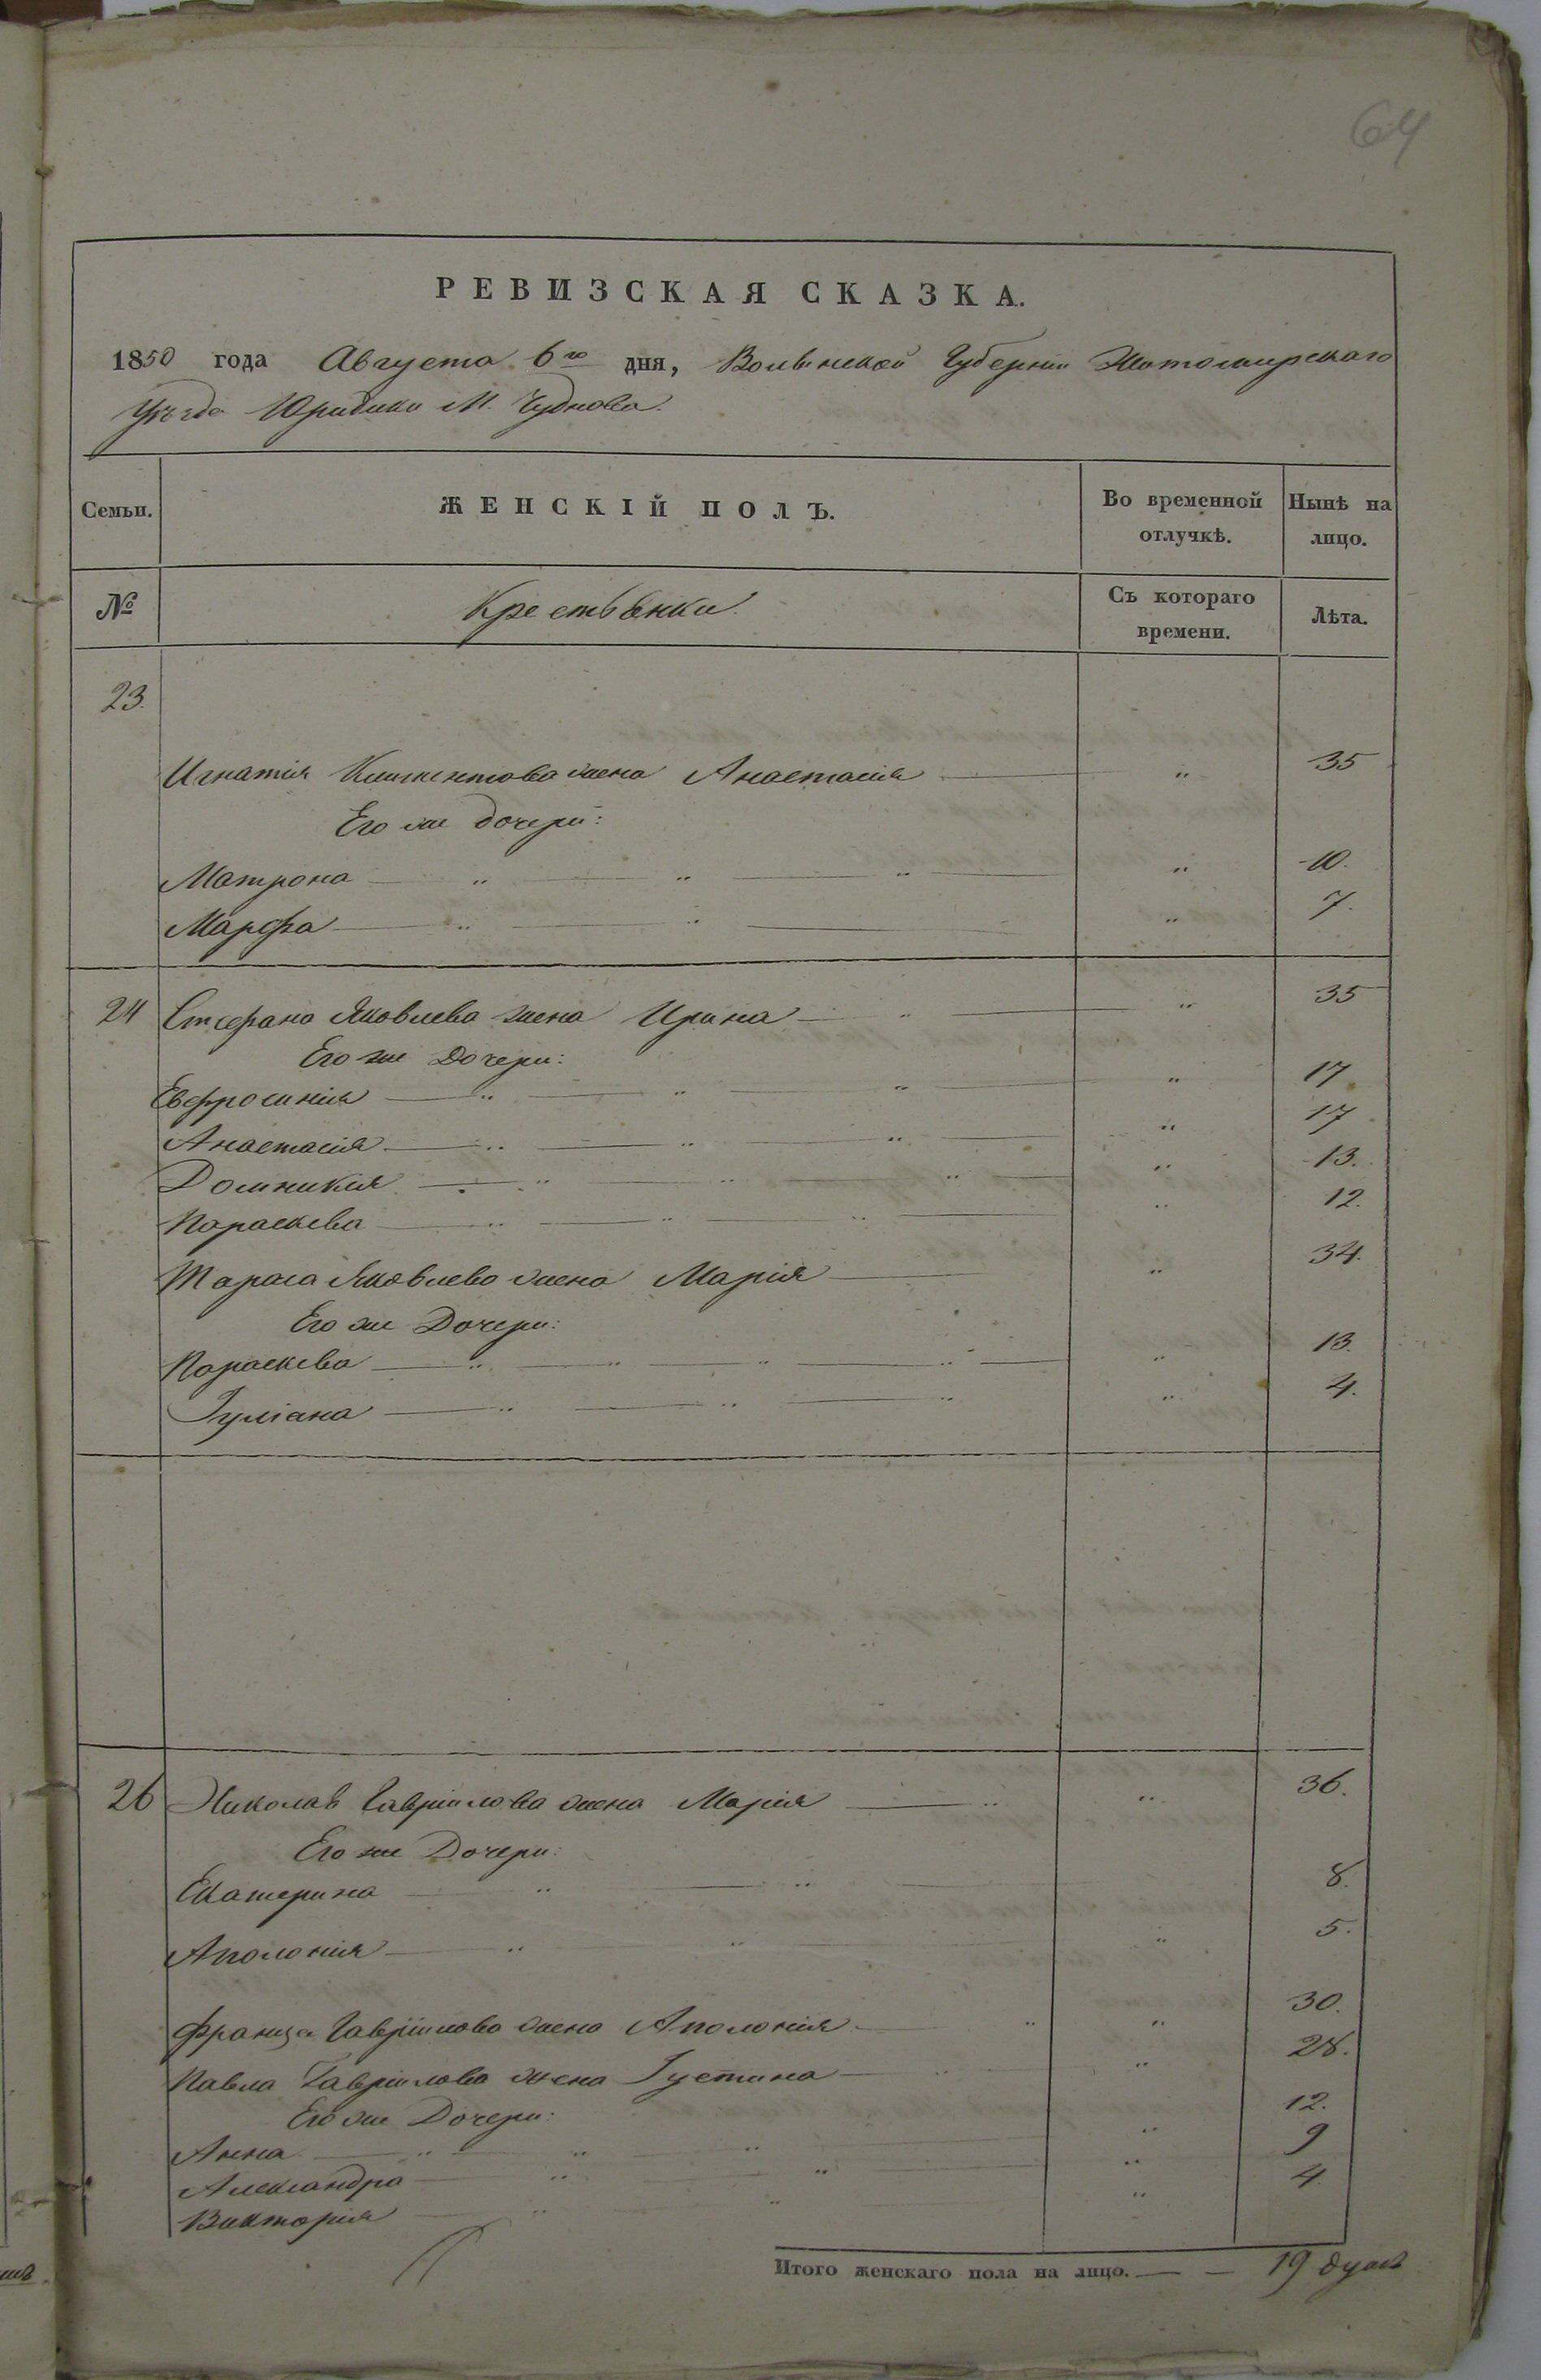 64
РЕВИЗСКАЯ СКАЗКА.
1850 года Августа 6го дня, Волынской Губернии Житомирскаго
Уѣзда Юридики М. Чуднова.
Семьи. ЖЕНСКІЙ ПОЛЪ. Во временной отлучкѣ. Нынѣ на лицо.
№ Крестьянки. Съ котораго времени. Лѣта.
23.
Игнатія Климентова жена Анастасія " 35
Его же дочери:
Матрона " " " " 10.
Марфа " " " 7.
24 Стефана Яковлева жена Ирина " " 35
Его же Дочери:
Евфросинія " " " " 17
Анастасія " " " " 17
Домникія " " " " 13.
Параскева " " " " 12.
Тараса Яковлева жена Марія " 34.
Его же Дочери:
Параскева " " " " " 13.
Іуліана " " " " 4.
26 Николая Гавріилова жена Марія " " 36.
Его же Дочери:
Екатерина " " 8.
Аполонія " " " 5.
Франца Гавріилова жена Аполонія " " 30.
Павла Гавріилова жена Іустина " " 28.
Его же Дочери:
Анна " " " " 12.
Александра " " " 9
Викторія " " " 4
Итого женскаго пола на лицо. — — 19 душъ